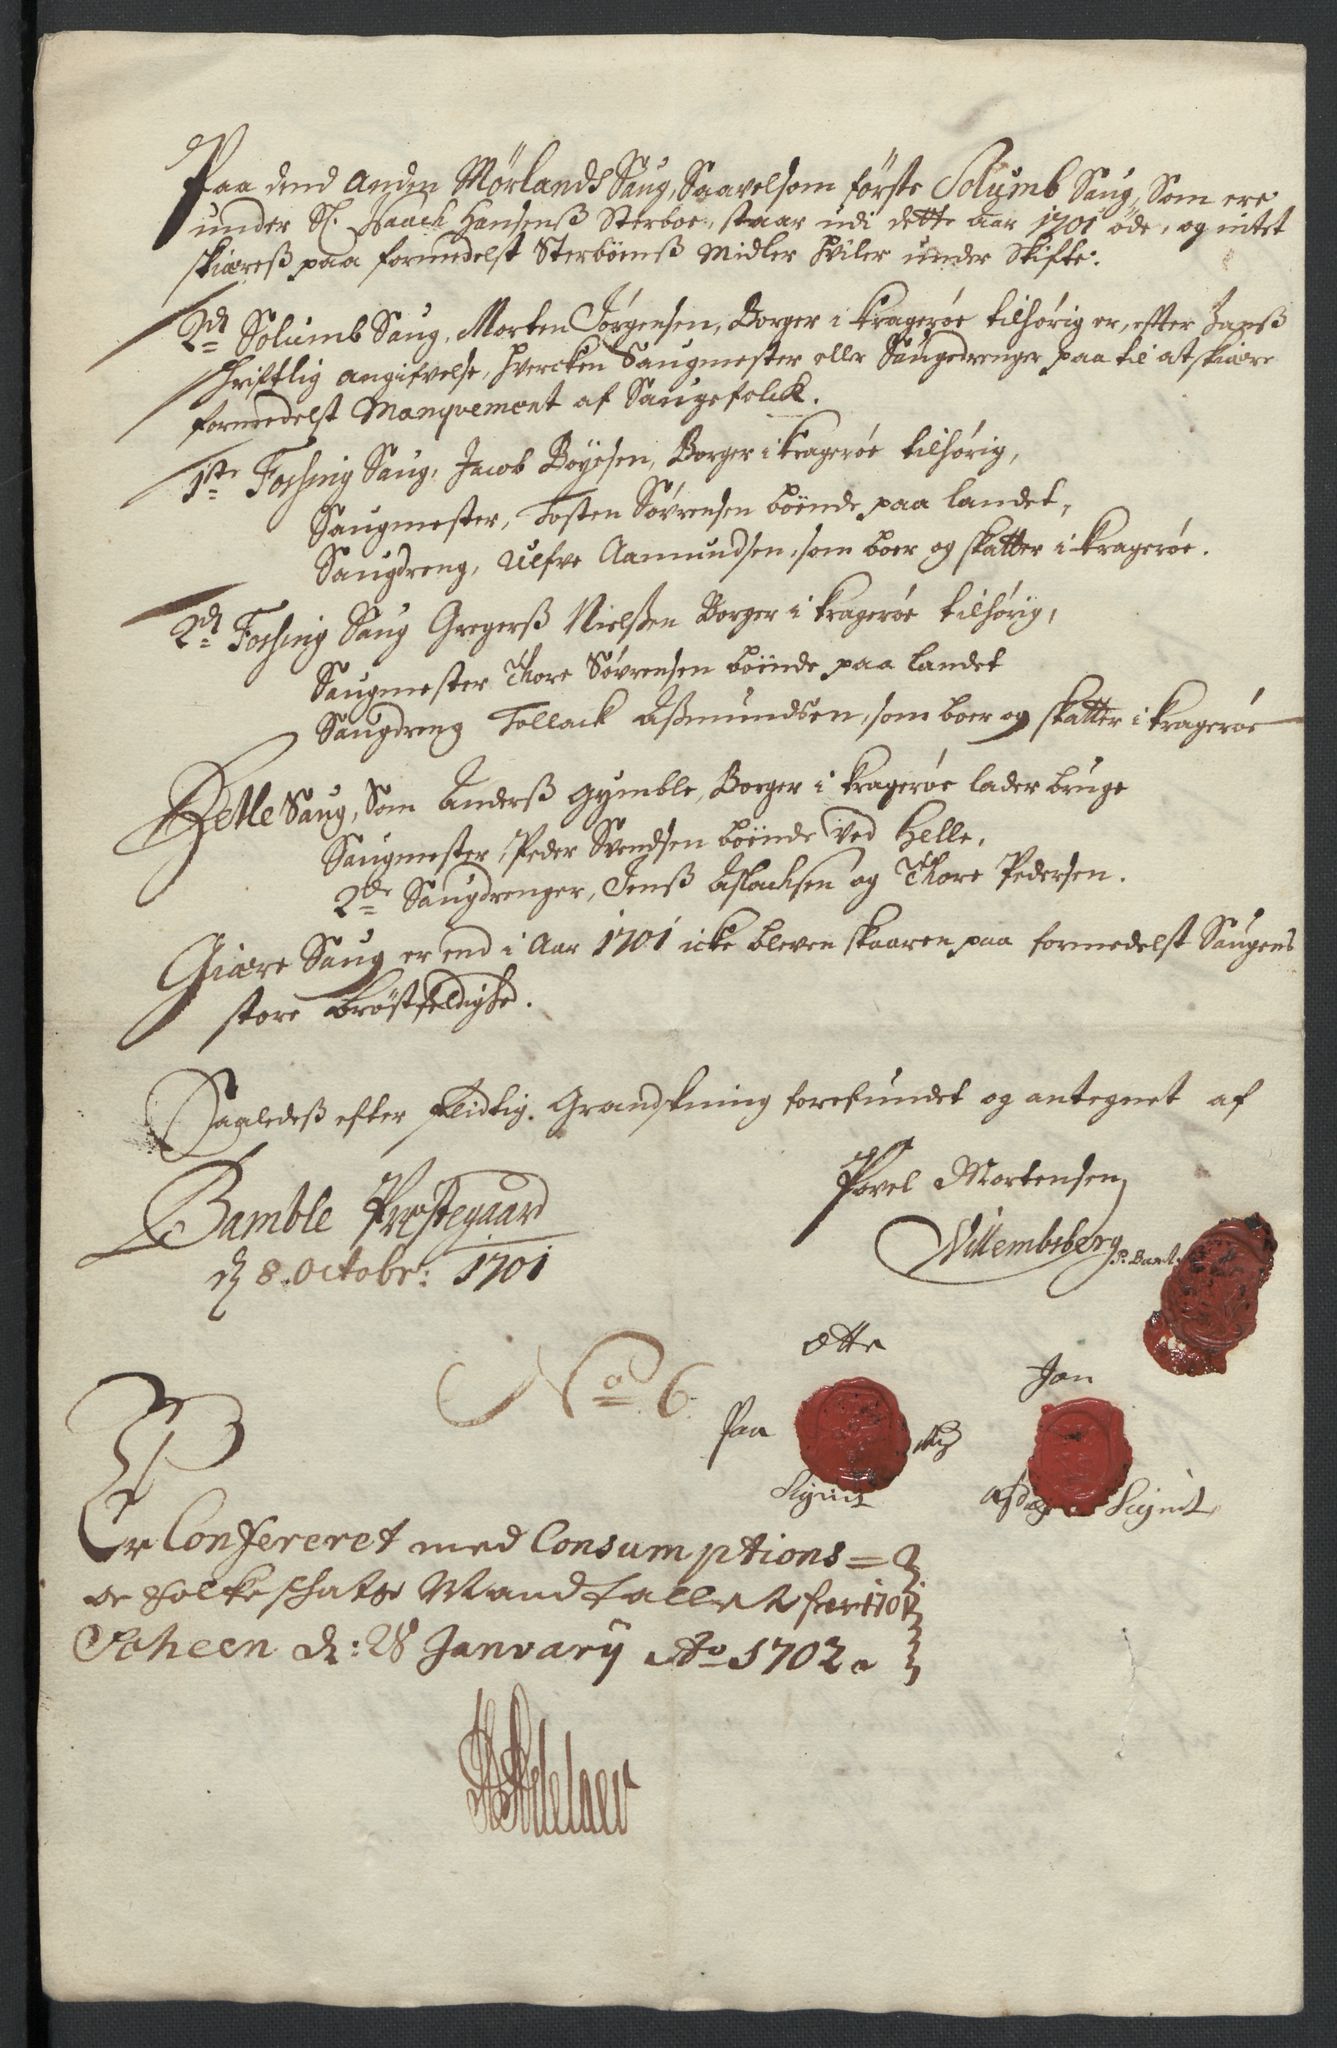 Paa dend anden Mørlands Saug, Saavelsom første Solumb Saug, Som ere
under Sl. Isaach Hansensß Sterboe, staar udi dette aar 1701 øde, og intet
skiæreß paa formedelst Sterböenß Midler hviler under Skifte.
2d Solumb Saug, Morten Jørgensen, Borger i Kragerøe tilhørig er, efter hanß
schriftlig angifvelse, hvercken Saugmester eller Saugedrenger paa til at skiære
formedelst Manqvement af Saugefolck.
1ste Fossing Saug, Jacob Boyesen, Borger i Kragerøe tilhørig,
Saugmester, Tosten Søvrensen boende paa landet,
Saugdreng, Ulfve Aamundsen, som boer og skatter i Kragerøe.
2d Fossing Saug Gregerß Nielsen Borger i Kragerøe tilhørig,
Saugmester Thore Sövrensen boende paa landet
Saugdreng Tollack Aßmundsen, som boer og skatter i Kragerøe
Helle Saug, Som Anderß Gymble, Borger i Kragerøe lader bruge
Saugmester, Peder Svendsen boende ved Helle.
2de Saugdrenger, Jenß Aslachsen og Thore Pedersen.
Giære Saug er end i Aar 1701 icke bleven skaaren paa formedelst Saugens
store brøstfeldighed.
Saaledeß efter flidtig Grandskning forefundet og antegnet af
Bamble Præstegaard
d 8 Octobr: 1701
Povel Mortensen
Willembsberg
No 6
Otte
Paa
Signet
Jon
Signet
Er Confereret med Consumptions=
og folke schatts Mandtallet for 1701
Scheen d: 28 January Ao 1702